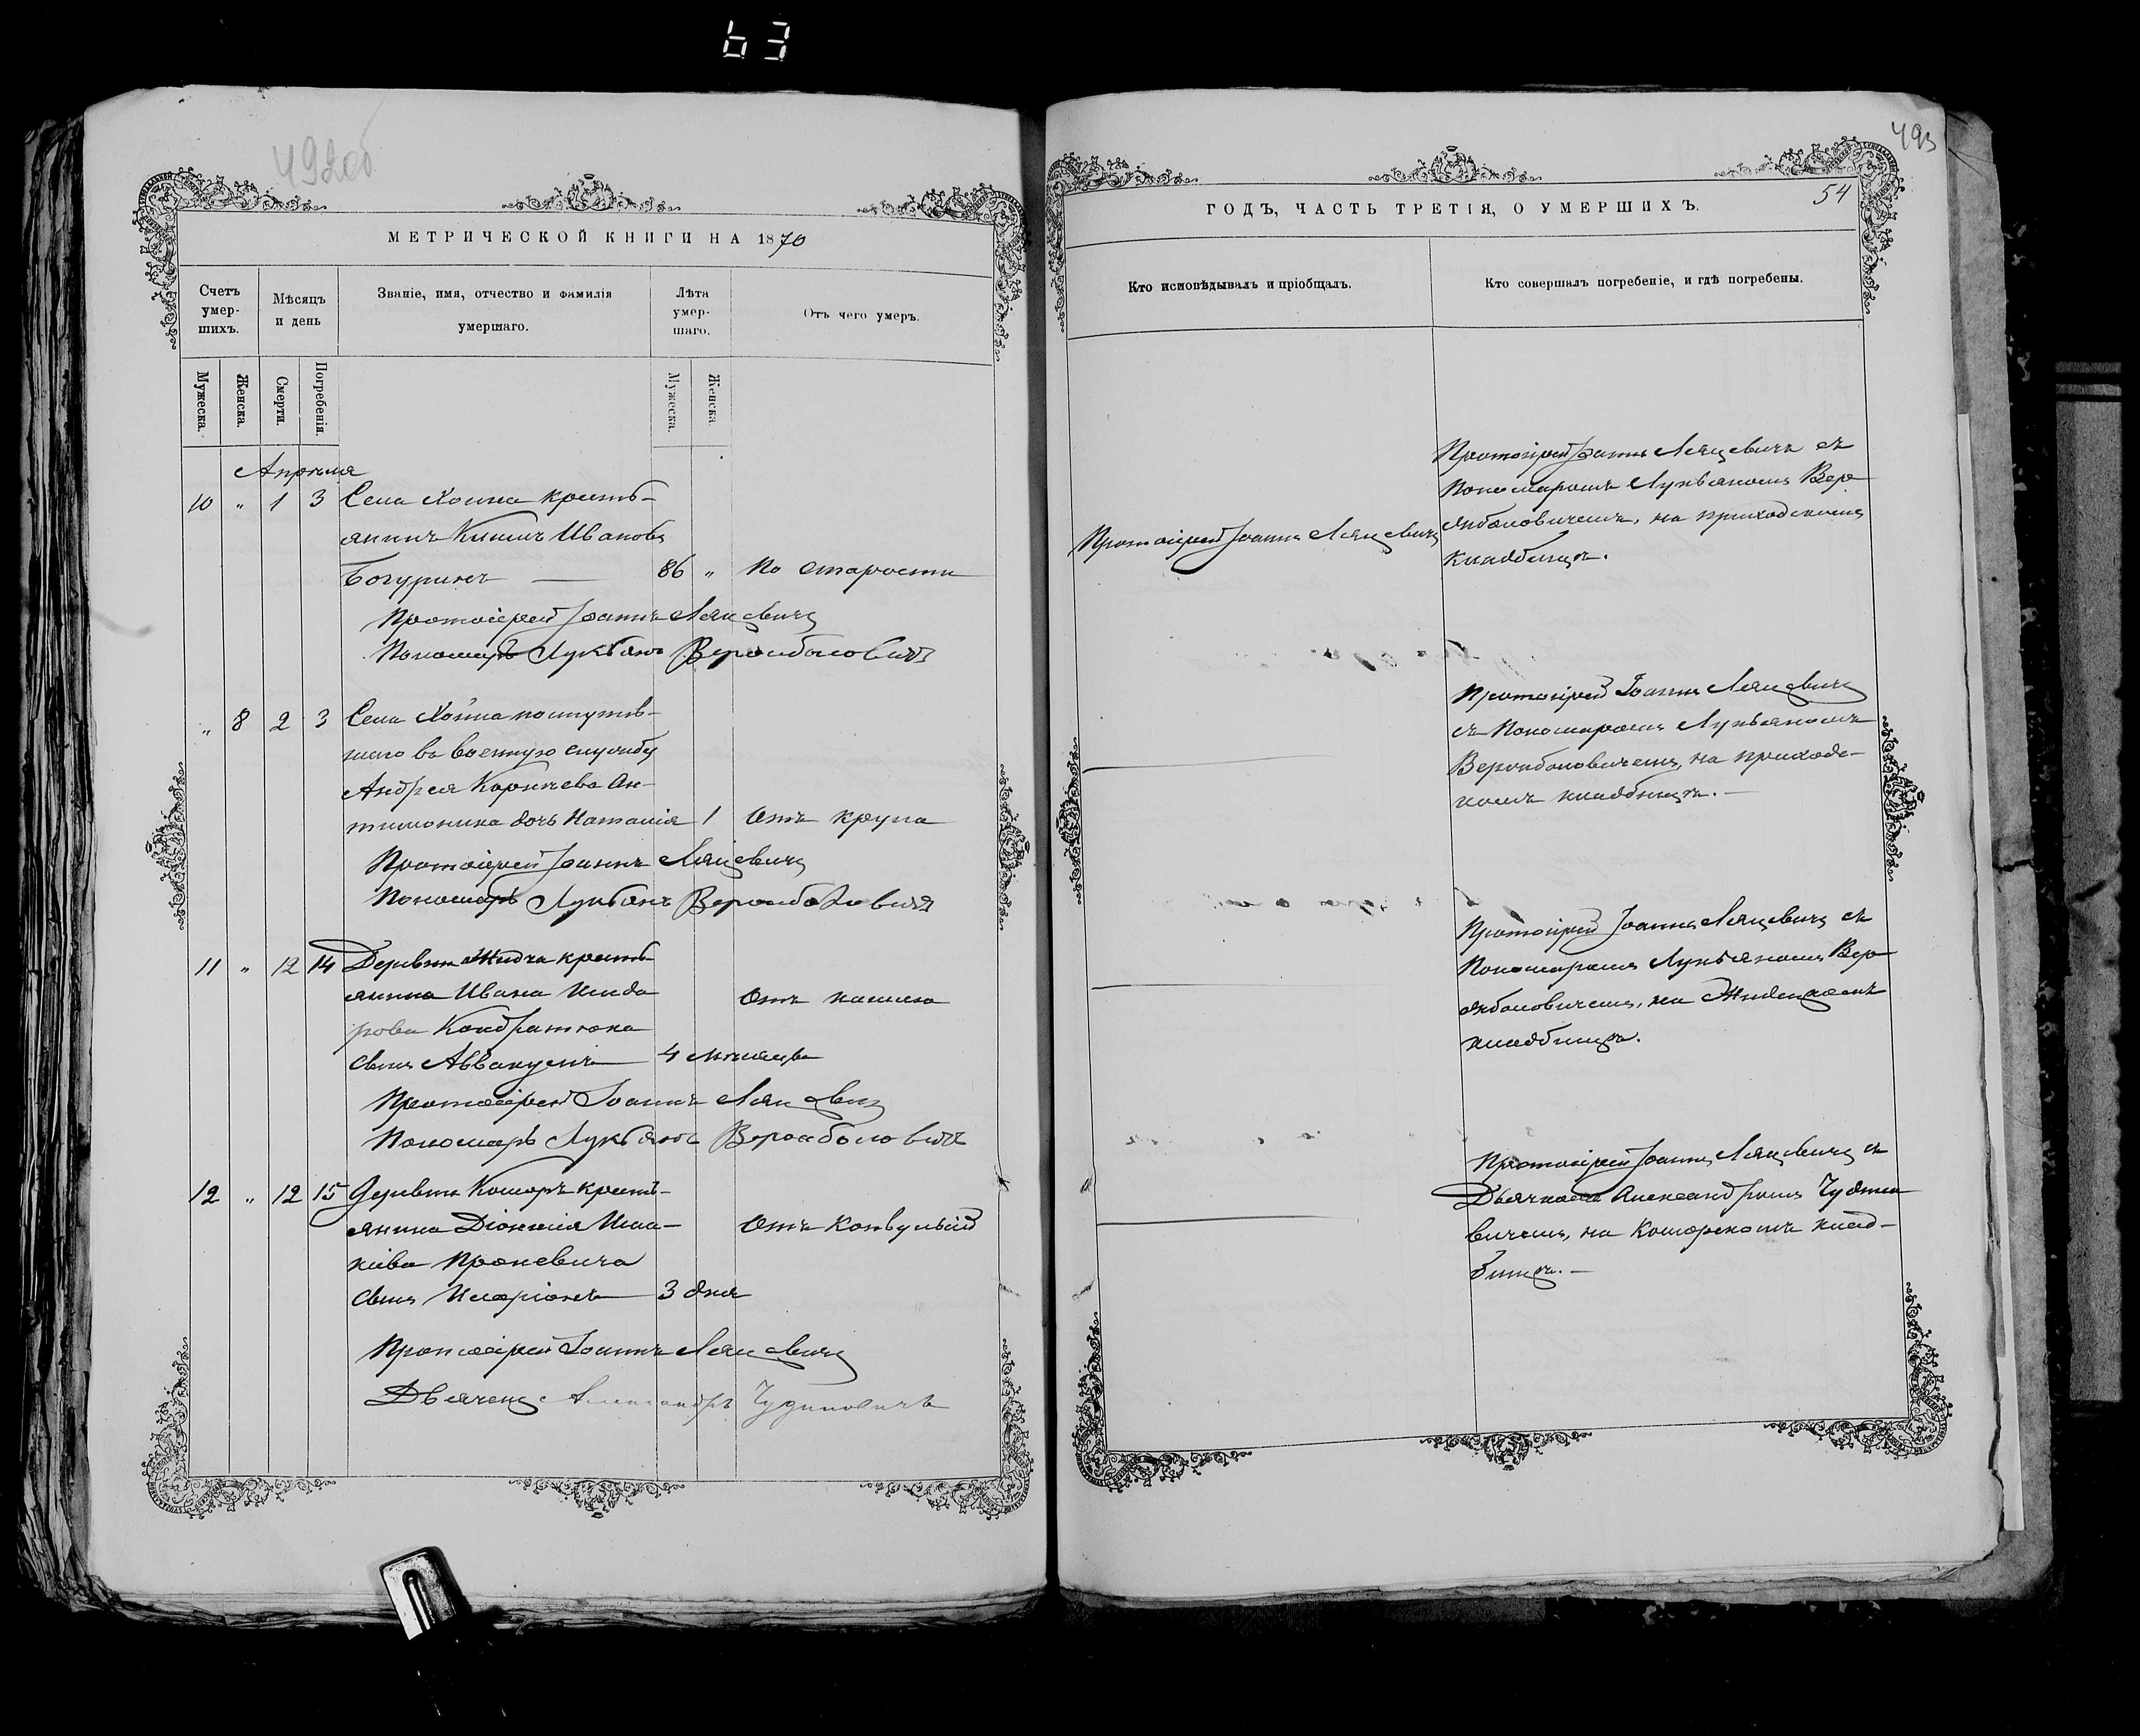 63
492об
МЕТРИЧЕСКОЙ КНИГИ НА 1870
Счетъ умершихъ.
Мѣсяцъ и день
Званіе, имя, отчество и фамилія умершаго.
Лѣта умершаго.
Отъ чего умеръ.
Мужеска.
Женска.
Смерти.
Погребенія.
Мужеска.
Женска.
Апрѣля
10 " 1 3 Села Хойна кресть-
янинъ Иванова
Богуринъ — 86 " По старости
Протоіерей Іоаннъ Ляцевичъ
Пономарь Лукьянъ Вероиболовичъ
" 8 2 3 Села Хойна поступив-
шаго въ военную службу
Андрея Корнѣева Ан-
тимоника дочь Наталія 1 Отъ крупа
Протоіерей Іоаннъ Ляцевичъ
Пономарь Лукьянъ Вероиболовичъ
11 " 12 14 Деревни Жидча кресть-
янина Ивана Исидо
рова Кондратюка Отъ кашля
сынъ Аввакумъ — 4 мѣсяца
Протоіерей Іоаннъ Ляцевичъ
Пономарь Лукьянъ Вероиболовичъ
12 " 12 15 Деревни Коморъ кресть-
янина Діонисія Иса- Отъ конвульсій
кіева Проневича
сынъ Иларіонъ — 3 дня
Протоіерей Іоаннъ Ляцевичъ
Дьячекъ Александръ Чудиновичъ
493
54
ГОДЪ, ЧАСТЬ ТРЕТІЯ, О УМЕРШИХЪ.
Кто исповѣдывалъ и пріобщалъ.
Кто совершалъ погребеніе, и гдѣ погребены.
Протоіерей Іоаннъ Ляцевичъ
Протоіерей Іоаннъ Ляцевичъ съ
Пономаремъ Лукьяномъ Вер
оиболовичемъ, на приходскомъ
кладбищѣ.
Протоіерей Іоаннъ Ляцевичъ
съ Пономаремъ Лукьяномъ
Вероиболовичемъ, на приходс-
комъ кладбищѣ. —
Протоіерей Іоаннъ Ляцевичъ съ
Пономаремъ Лукьяномъ Вер
оиболовичемъ, на Жидецкомъ
кладбищѣ.
Протоіерей Іоаннъ Ляцевичъ съ
Дьячкомъ Александромъ Чудино
вичемъ, на Коморскомъ клад-
бищѣ. —